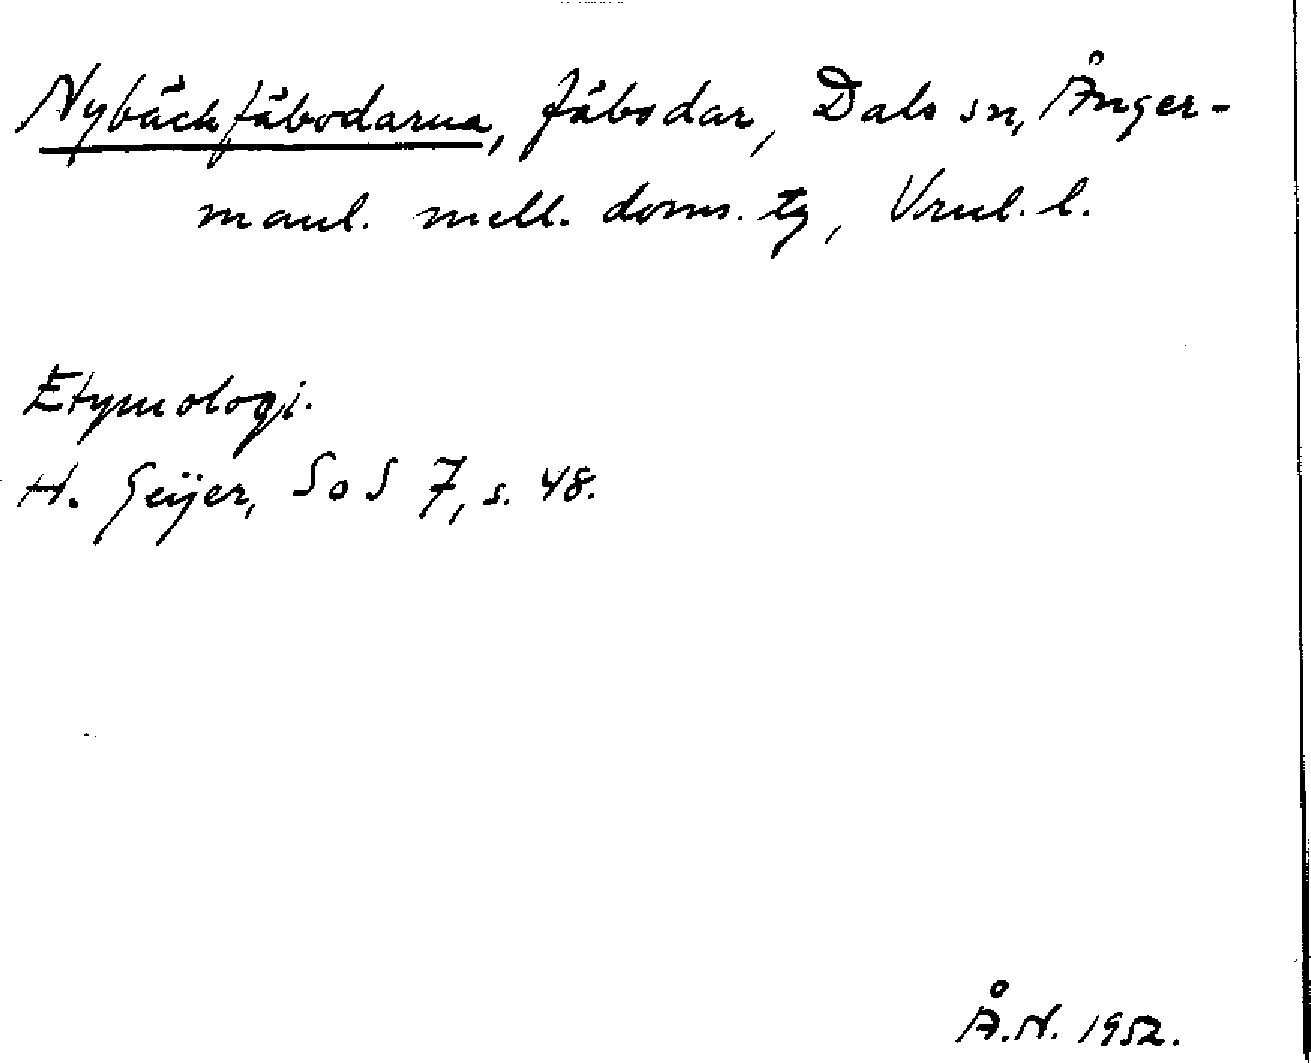 Nybäckfäbodarna, fäbodar, Dals sn, Ånger-
manl. mell. doms. tg, Vnl. l.
Etymologi.
H. Geijer, SoS 7, s. 48.
Å.N. 1952.